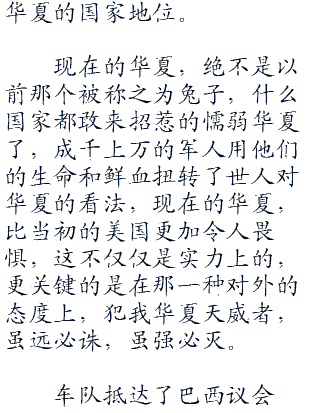 华夏的国家地位。
现在的华夏，绝不是以
前那个被称之为兔子，什么
国家都敢来招惹的懦弱华夏
了，成千上万的军人用他们
的生命和鲜血扭转了世人对
华夏的看法，现在的华夏，
比当初的美国更加令人畏
惧，这不仅仅是实力上的，
更关键的是在那一种对外的
态度上，犯我华夏天威者，
虽远必诛，虽强必灭。
车队抵达了巴西议会